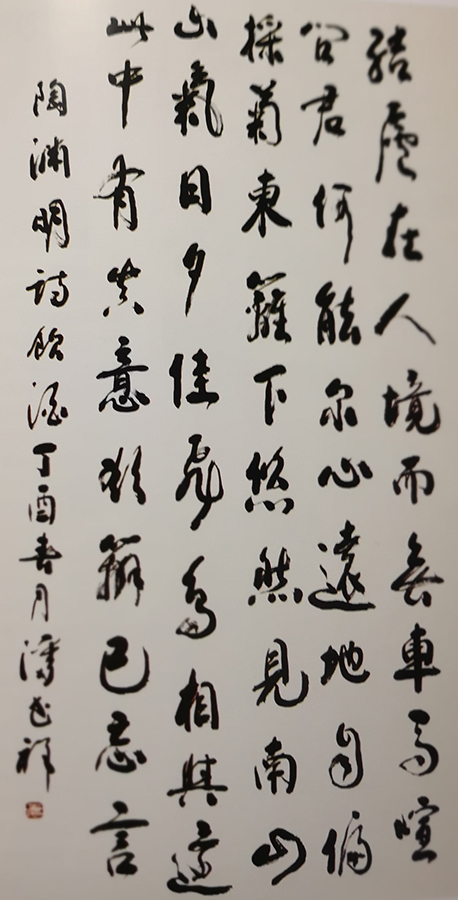 結廬在人境而無車馬喧
問君何能尔心遠地自偏
採菊東籬下悠然見南山
山氣日夕佳飛鳥相與還
此中有真意欲辨已忘言
陶渊明詩飲酒丁酉春月祥